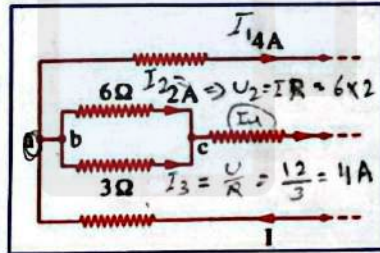 I₁ 4A
6Ω I₂ = 2A ⇒ U₂ = I R = 6 × 2
a b c I₄
3Ω I₃ = U/R = 12/3 = 4A
I